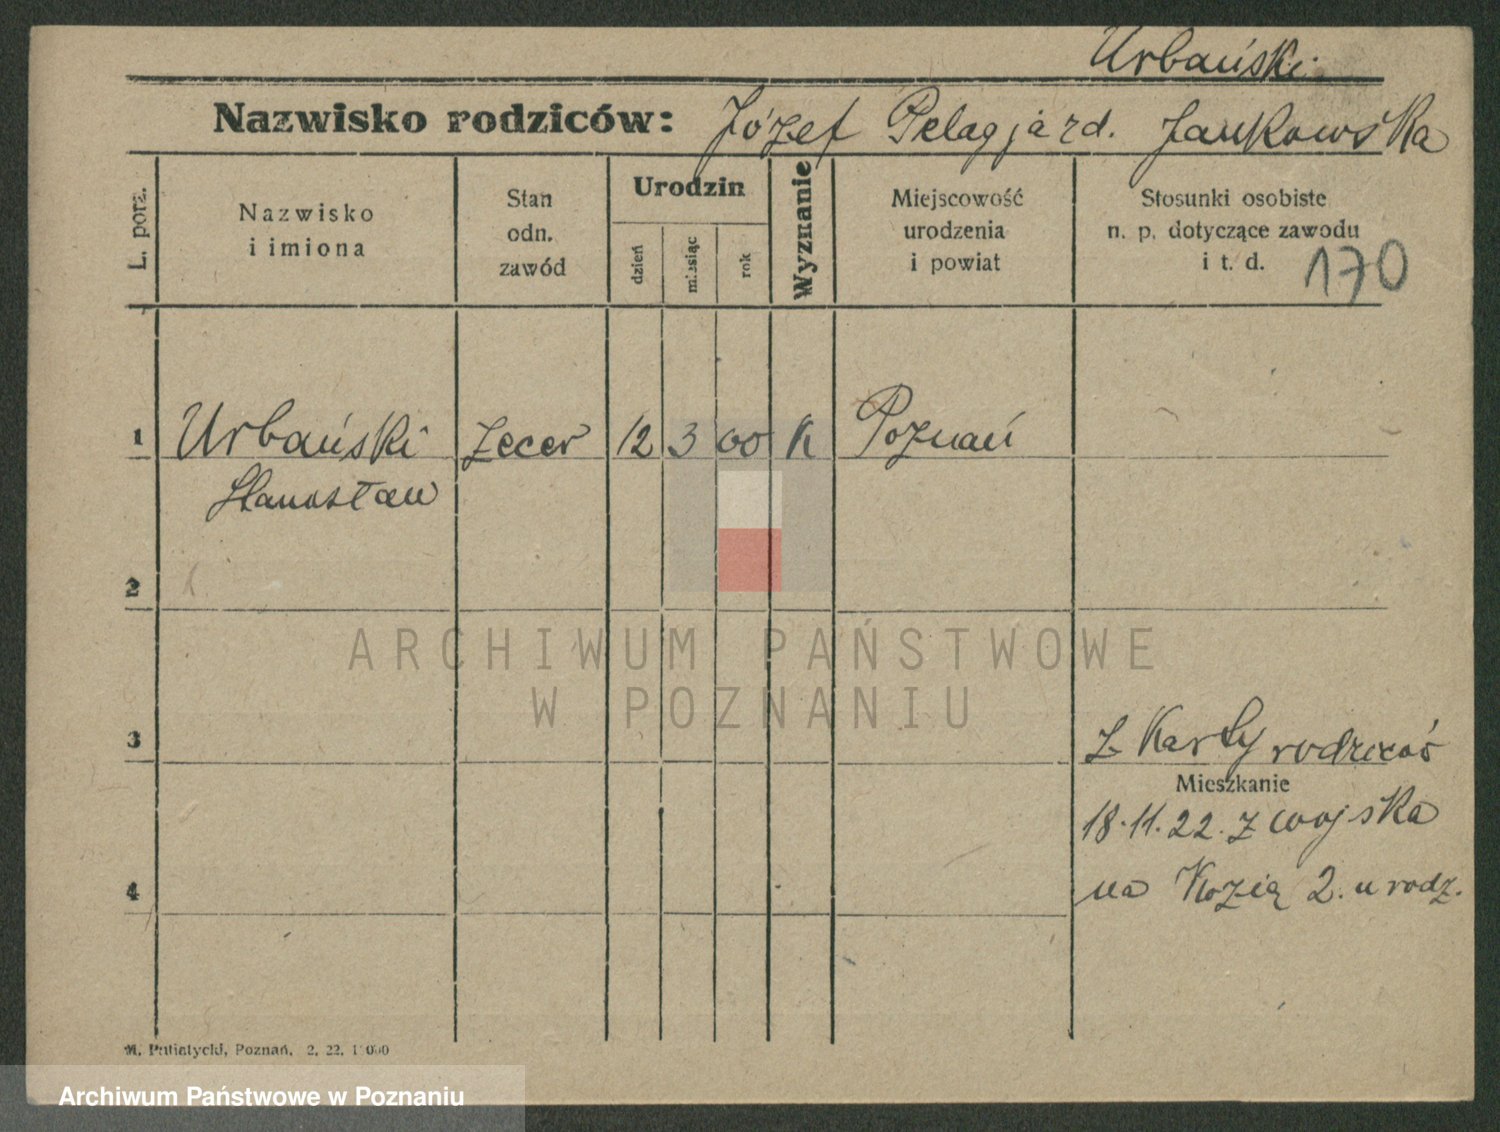 Urbański
Nazwisko rodziców: Józef Pelagja zd. Jankowska
L. porz.
Nazwisko
i imiona
Stan
odn.
zawód
Urodzin
dzień
miesiąc
rok
Wyznanie
Miejscowość
urodzenia
i powiat
Stosunki osobiste
n. p. dotyczące zawodu
i t. d.
170
1 Urbański zecer 12 3 00 K Poznań
Stanosław
2
ARCHIWUM PAŃSTWOWE
W POZNANIU
3
z Karty rodziców
Mieszkanie
18.11.22. z wojska
4
na Kozią 2. u rodz.
M. Putiatycki, Poznań, 2, 22,
Archiwum Państwowe w Poznaniu